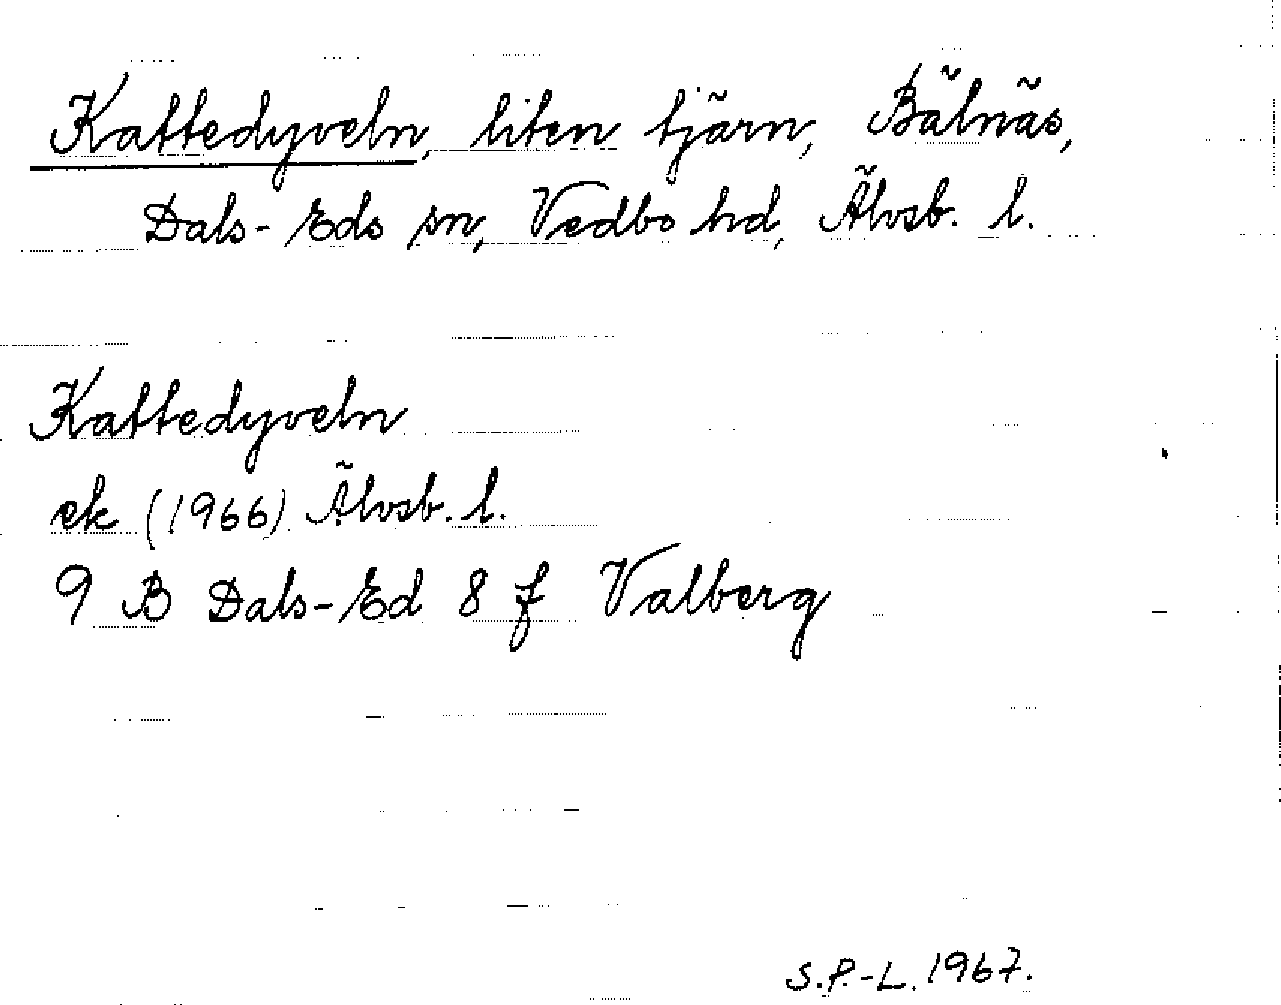 Kattedyveln, liten tjärn, Bälnäs,
Dals-Eds sn, Vedbo hd, Älvsb. l.
Kattedyveln
ek (1966) Älvsb. l.
9 B Dals-Ed 8 f Valberg
S.P.-L. 1967.